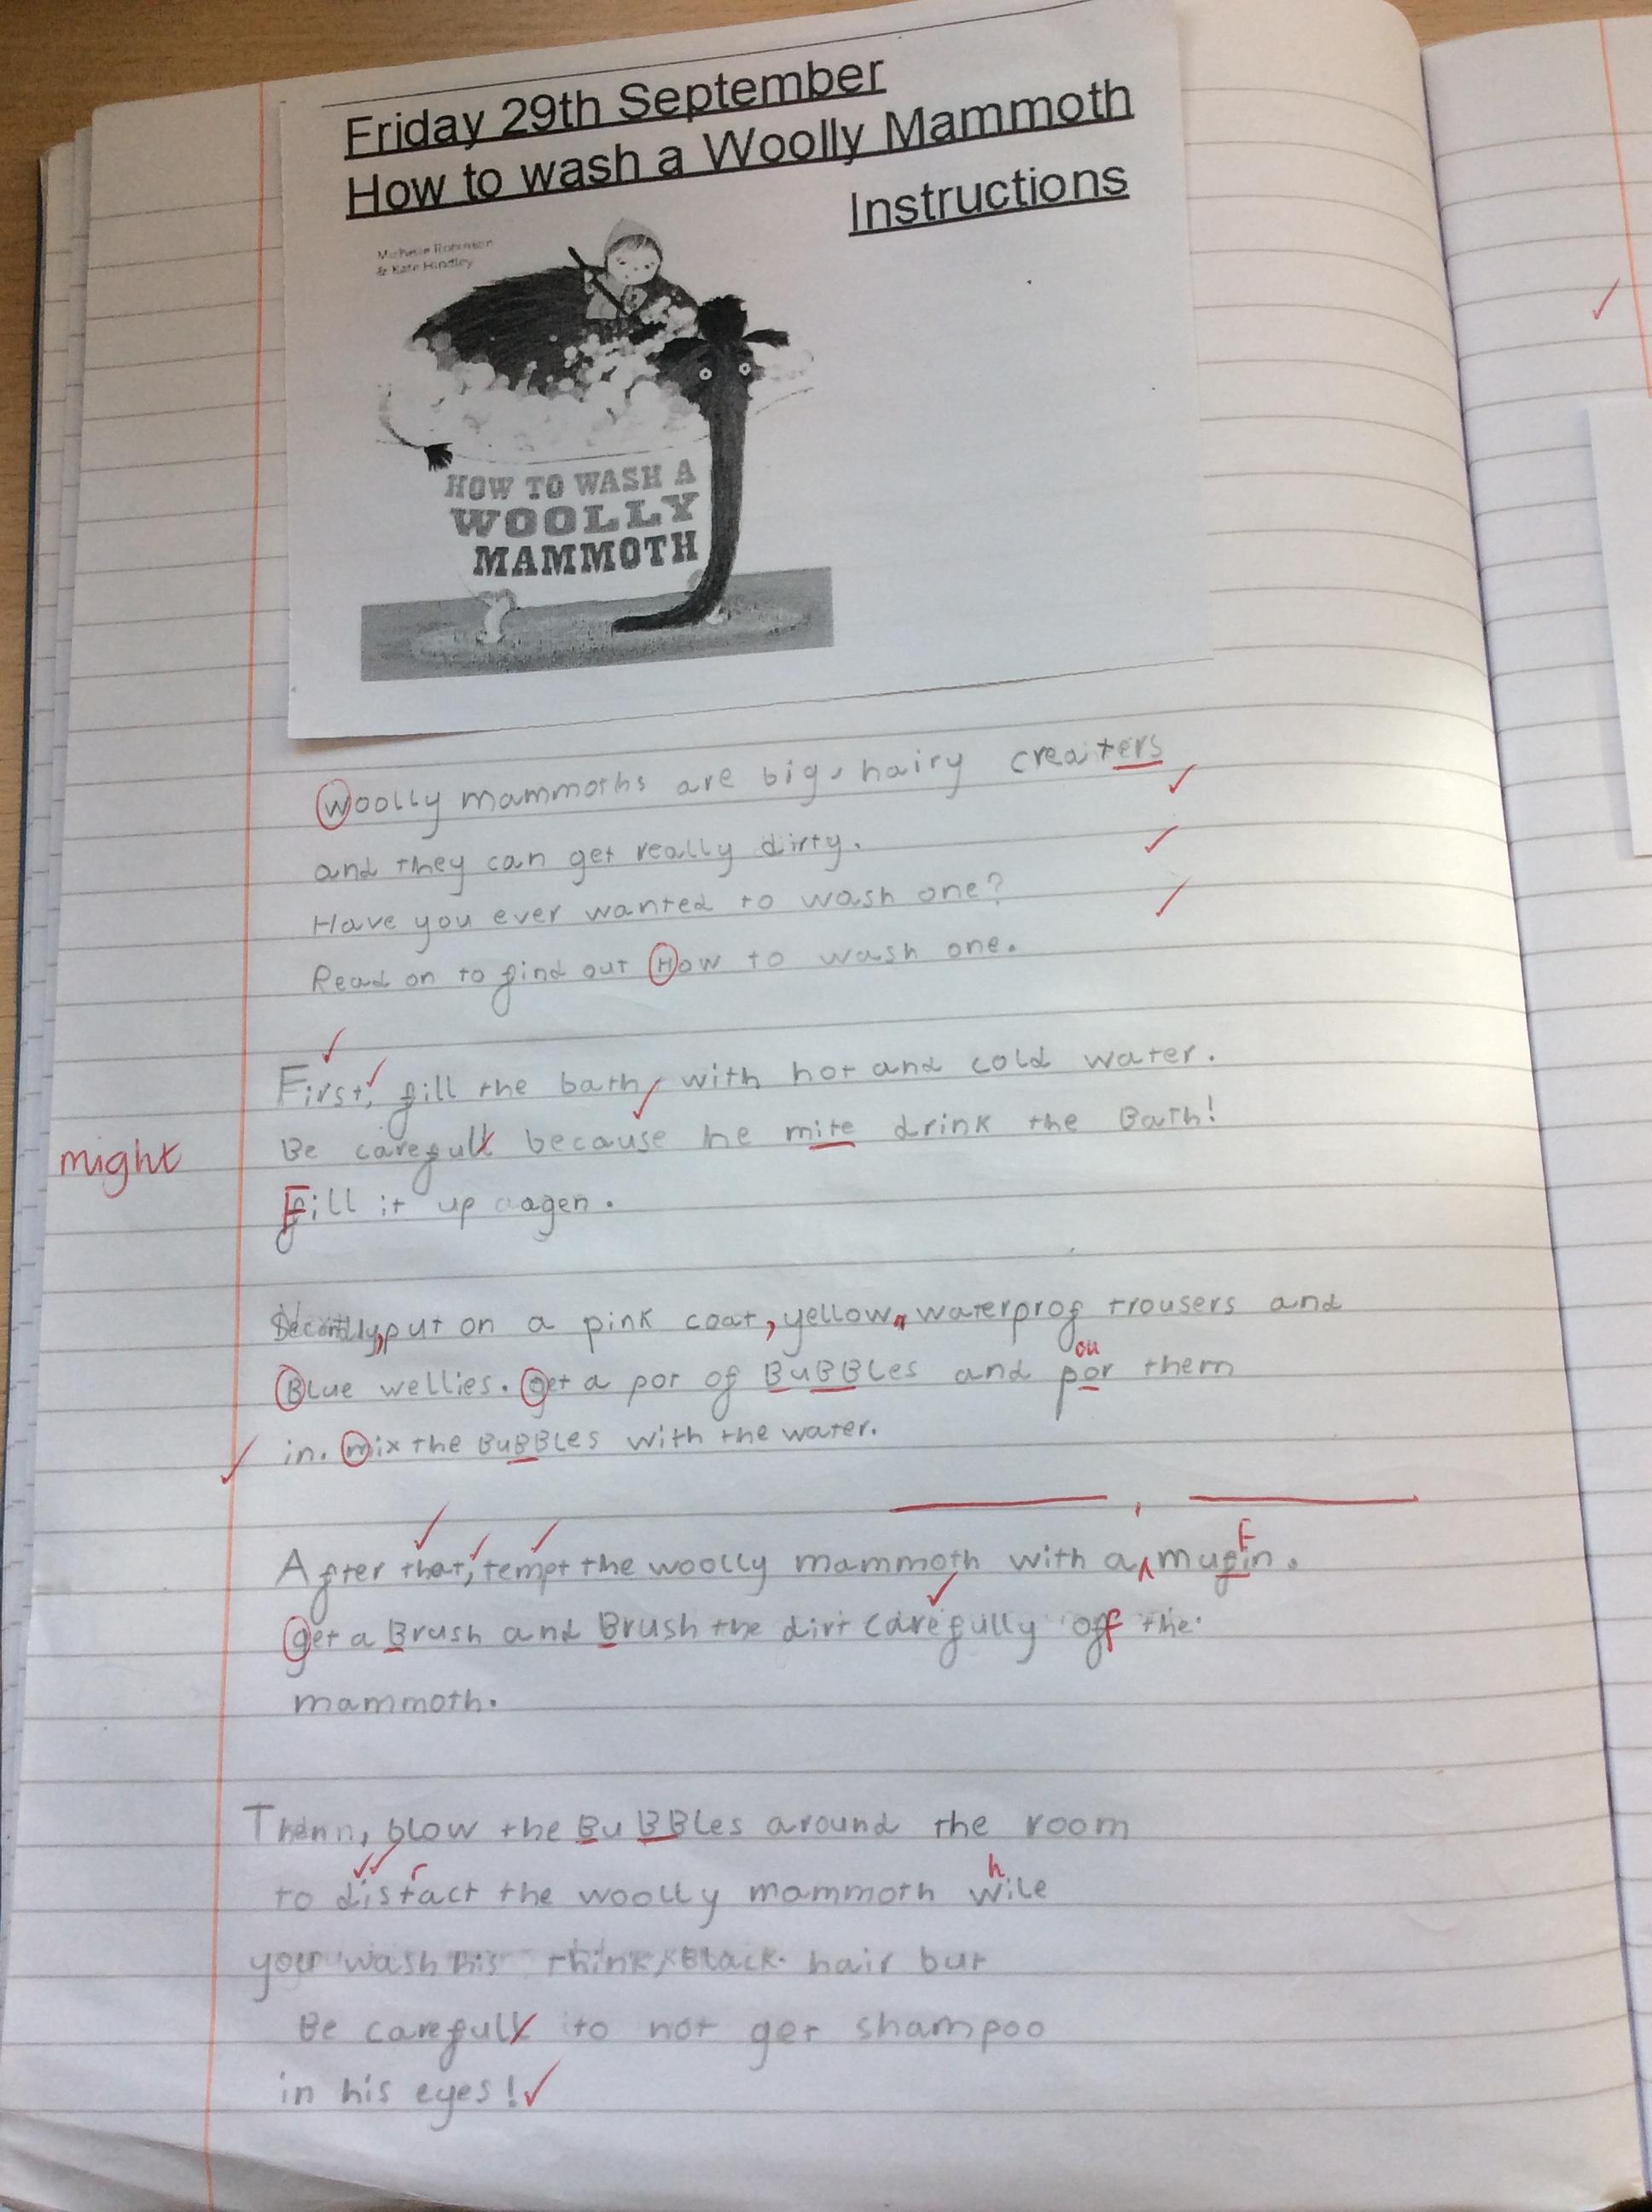 Friday 29th September
How to wash a Woolly Mammoth
Instructions
Michelle Robinson
& Kate Hindley
HOW TO WASH A
WOOLLY
MAMMOTH
Woolly mammoths are big, hairy creaters
and they can get really dirty.
Have you ever wanted to wash one?
Read on to find out How to wash one.
First, fill the bath, with hot and cold water.
might
Be carefull because he mite drink the Bath!
Fill it up agen.
put on a pink coat, yellow, waterprof trousers and
ou
Blue wellies. get a pot of BuBBles and por them
in. mix the BuBBles with the water.
,
F
After that, tempt the woolly mammoth with a mufin.
get a Brush and Brush the dirt carefully off the
mammoth.
blow the BuBBles around the room
r h
to distact the woolly mammoth wile
you wash his think, Black hair but
Be carefull to not get shampoo
in his eyes!